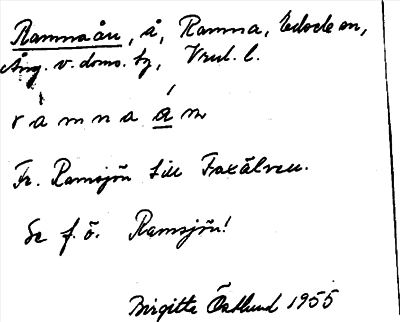 Ramnaån, å, Ramna, Edsele sn,
Ång. v. doms. bg, Vrul. l.
r a m n a å n
Fr. Ramsjön till Faxälven.
Se f. ö. Ramsjön!
Birgitta Östlund 1955